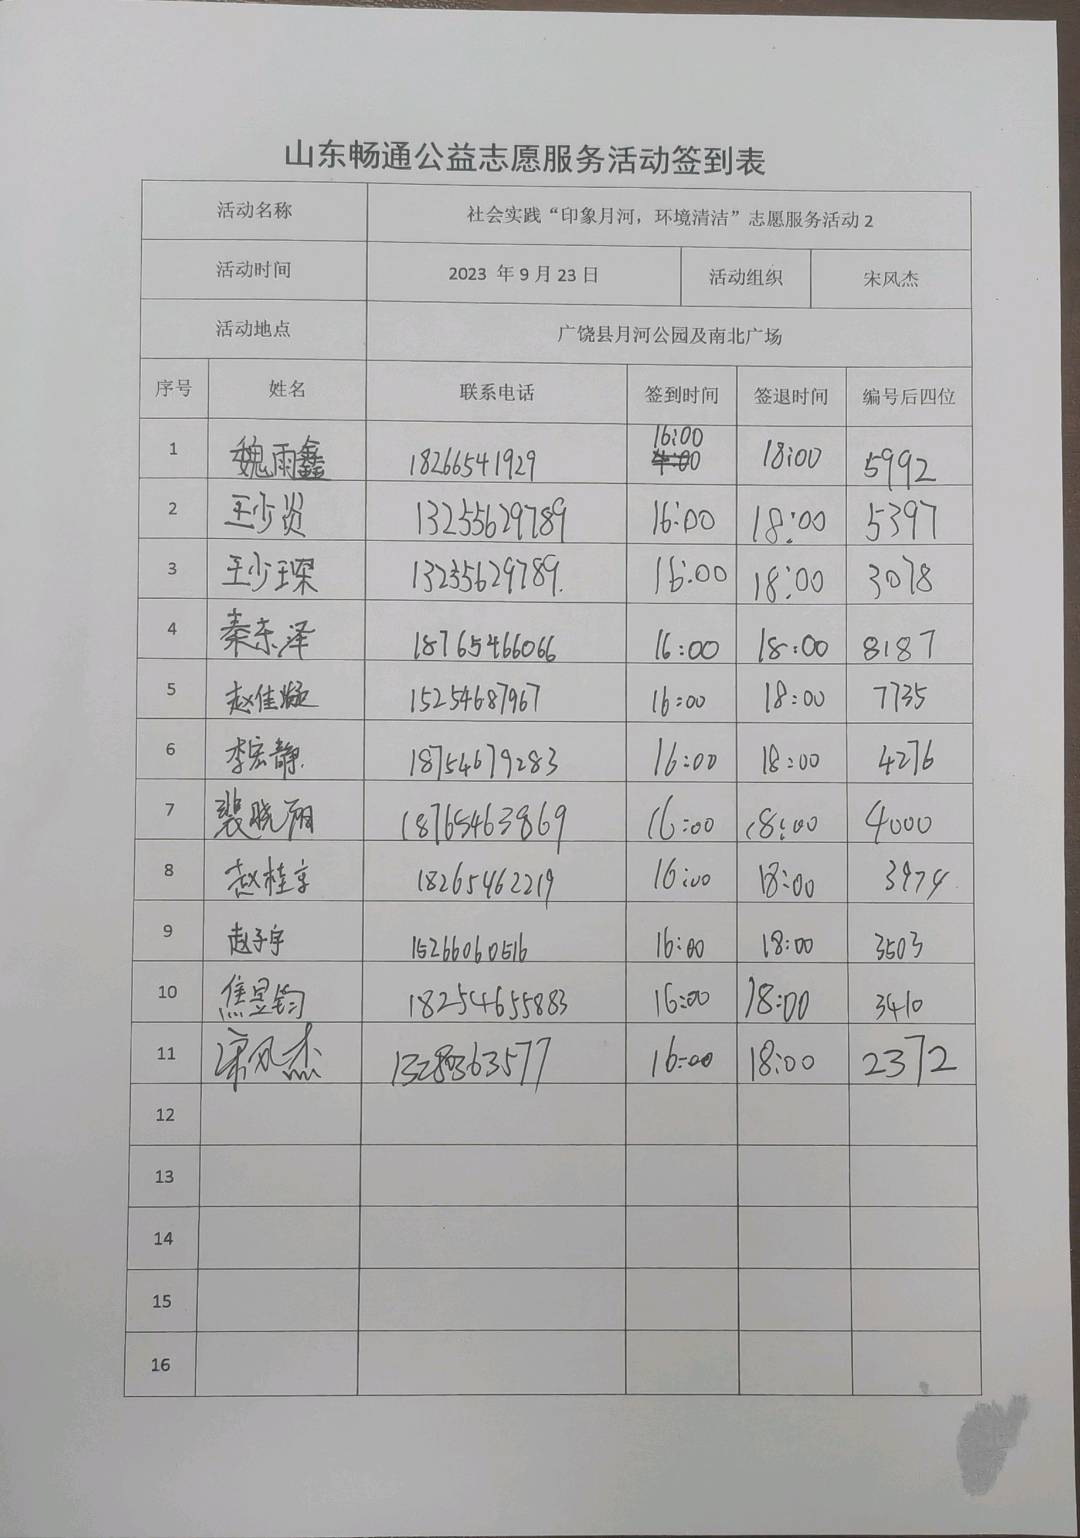 山东畅通公益志愿服务活动签到表
活动名称 社会实践“印象月河，环境清洁”志愿服务活动2
活动时间 2023 年9月23日 活动组织 宋风杰
活动地点 广饶县月河公园及南北广场
序号 姓名 联系电话 签到时间 签退时间 编号后四位
1 魏雨鑫 18266541929 16:00 18:00 5992
2 王少贤 13255629789 16:00 18:00 5397
3 王少琛 13255629789. 16:00 18:00 3078
4 秦东泽 18765466066 16:00 18:00 8187
5 赵佳凝 15254687967 16:00 18:00 7735
6 李宏静 18754679283 16:00 18:00 4276
7 裴晓丽 18765463869 16:00 18:00 4000
8 赵桂京 18265462219 16:00 18:00 3974
9 赵子宇 15266060516 16:00 18:00 3503
10 焦昱钧 18254655883 16:00 18:00 3410
11 宋风杰 16:00 18:00 2372
12
13
14
15
16